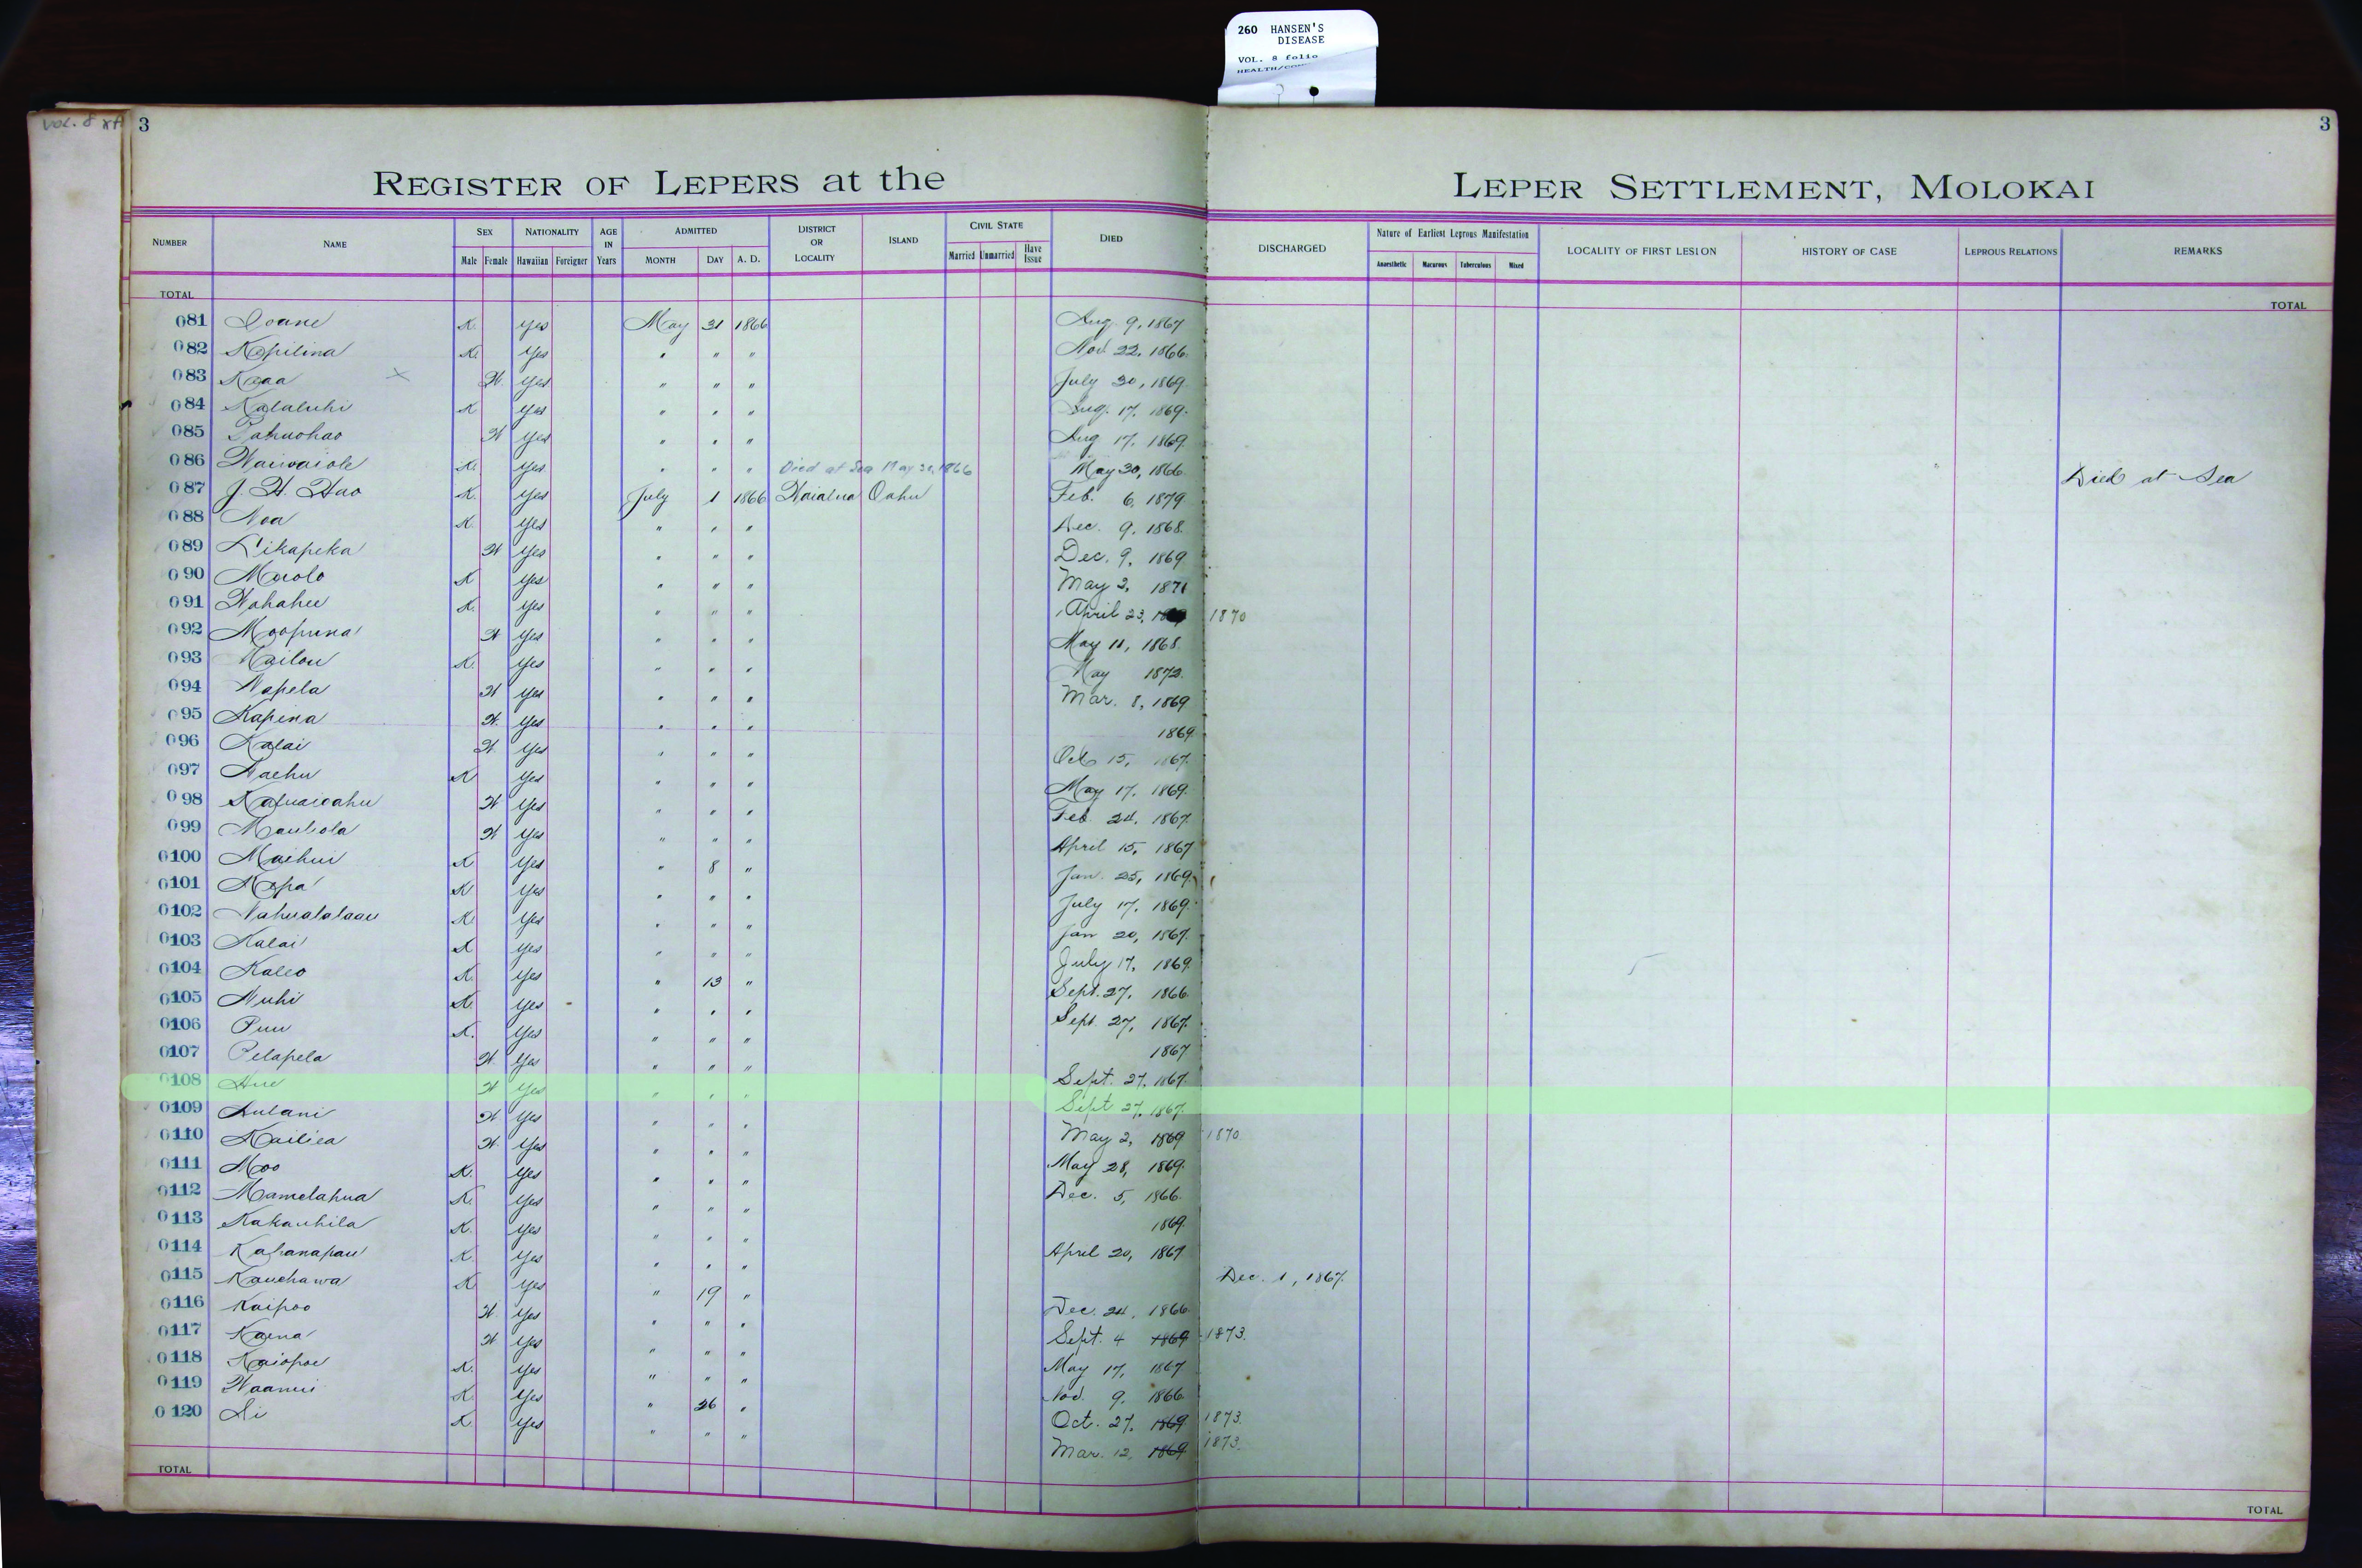 260 HANSEN'S
DISEASE
VOL. 8 folio
VOL. 8
3
3
REGISTER OF LEPERS at the LEPER SETTLEMENT, MOLOKAI
NUMBER NAME SEX Male Female NATIONALITY Hawaiian Foreigner AGE IN Years ADMITTED MONTH DAY A. D. DISTRICT OR LOCALITY ISLAND CIVIL STATE Married Unmarried Have Issue DIED DISCHARGED Nature of Earliest Leprous Manifestation Anaesthetic Macurous Tuberculous Mixed LOCALITY OF FIRST LESION HISTORY OF CASE LEPROUS RELATIONS REMARKS
TOTAL TOTAL
081 Ioane K. Yes May 31 1866 Aug. 9, 1867
082 Kapilina K. Yes " " " Nov. 22, 1866.
083 Kaaa × W. Yes " " " July 30, 1869.
084 Kalaluhi K Yes " " " Aug. 17, 1869.
085 Pahuohao W Yes " " " Aug 17, 1869.
086 Waiwaiole K. Yes " " " Died at Sea May 30, 1866 May 30, 1866. Died at Sea
087 J. H. Hao K. Yes July 1 1866 Waialua Oahu Feb. 6, 1879
088 Noa K. Yes " " " Dec. 9, 1868.
089 Likapeka W Yes " " " Dec. 9, 1869
090 Maolo K Yes " " " May 2, 1871
091 Wahahee K. Yes " " " April 23, 1870
092 Moopuna W Yes " " " May 11, 1868.
093 Kailou K. Yes " " " May 1872.
094 Napela W Yes " " " Mar. 8, 1869
095 Kapina W. Yes " " " 1869.
096 Kalai W. Yes " " " Oct 15, 1867.
097 Naehu K Yes " " " May 17, 1869.
098 W Yes " " " Feb. 24, 1867.
099 Mauliola W Yes " " " April 15, 1867
0100 Maihui K Yes " 8 " Jan. 25, 1869.
0101 Napa K Yes " " " July 17, 1869.
0102 Nahualalaau K. Yes " " " Jan 20, 1867.
0103 Kalai K Yes " " " July 17, 1869.
0104 Kaleo K. Yes " 13 " Sept. 27, 1866.
0105 Nuhi K. Yes " " " Sept. 27, 1867.
0106 Puu K. Yes " " " 1867
0107 Pelapela W. Yes " " " Sept. 27, 1867.
0108 Hue W Yes " " " Sept 27, 1867.
0109 Aulani W. Yes " " " May 2, 1869 1870.
0110 Kailiea W. Yes " " " May 28, 1869.
0111 Moo K. Yes " " " Dec. 5, 1866.
0112 Mamelahua K. Yes " " " 1869.
0113 Kakauhila K. Yes " " " April 20, 1867
0114 Kahanapau K. Yes " " " Dec. 1, 1867.
0115 Kauehawa K. Yes " 19 " Dec. 24, 1866.
0116 Kaipoo W. Yes " " " Sept. 4 1869 1873.
0117 Kaena W Yes " " " May 17, 1867
0118 Kaiopoe K. Yes " " " Nov. 9, 1866.
0119 Waanui K. Yes " 26 " Oct. 27, 1869 1873.
0120 Ai K. Yes " " " Mar. 12, 1869 1873.
TOTAL TOTAL